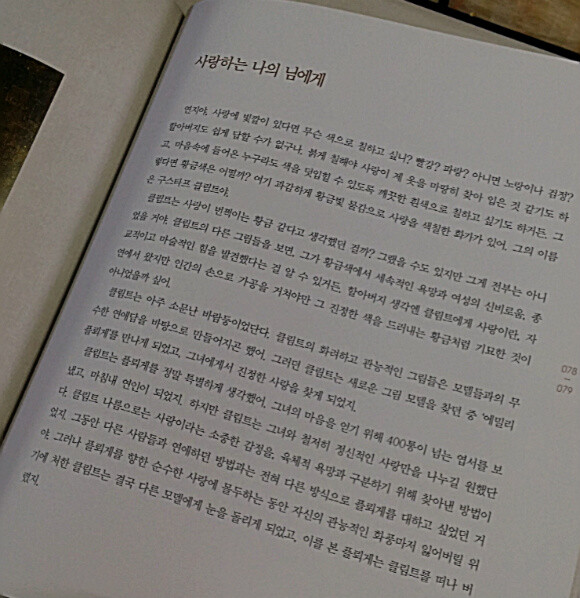 사랑하는 나의 님에게
연지야, 사랑에 빛깔이 있다면 무슨 색으로 칠하고 싶니? 빨강? 파랑? 아니면 노랑이나 검정?
할아버지도 쉽게 답할 수가 없구나. 붉게 칠해야 사랑이 제 옷을 마땅히 찾아 입은 것 같기도 하
고, 마음속에 들어온 누구라도 색을 덧입힐 수 있도록 깨끗한 흰색으로 칠하고 싶기도 하거든. 그
렇다면 황금색은 어떨까? 여기 과감하게 황금빛 물감으로 사랑을 색칠한 화가가 있어. 그의 이름
은 구스타프 클림트야.
클림트는 사랑이 번쩍이는 황금 같다고 생각했던 걸까? 그랬을 수도 있지만 그게 전부는 아니
었을 거야. 클림트의 다른 그림들을 보면, 그가 황금색에서 세속적인 욕망과 여성의 신비로움, 종
교적이고 마술적인 힘을 발견했다는 걸 알 수 있거든. 할아버지 생각엔 클림트에게 사랑이란, 자
연에서 왔지만 인간의 손으로 가공을 거쳐야만 그 진정한 색을 드러내는 황금처럼 기묘한 것이
아니었을까 싶어.
클림트는 아주 소문난 바람둥이었단다. 클림트의 화려하고 관능적인 그림들은 모델들과의 무
수한 연애담을 바탕으로 만들어지곤 했어. 그러던 클림트는 새로운 그림 모델을 찾던 중 '에밀리
플뢰게'를 만나게 되었고, 그녀에게서 진정한 사랑을 찾게 되었지.
클림트는 플뢰게를 정말 특별하게 생각했어. 그녀의 마음을 얻기 위해 400통이 넘는 엽서를 보
냈고, 마침내 연인이 되었지. 하지만 클림트는 그녀와 철저히 정신적인 사랑만을 나누길 원했단
다. 클림트 나름으로는 사랑이라는 소중한 감정을, 육체적 욕망과 구분하기 위해 찾아낸 방법이
었지. 그동안 다른 사람들과 연애하던 방법과는 전혀 다른 방식으로 플뢰게를 대하고 싶었던 거
야. 그러나 플뢰게를 향한 순수한 사랑에 몰두하는 동안 자신의 관능적인 화풍마저 잃어버릴 위
기에 처한 클림트는 결국 다른 모델에게 눈을 돌리게 되었고, 이를 본 플뢰게는 클림트를 떠나 버
렸지.
078
079